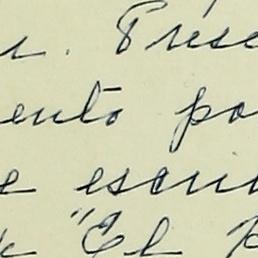 r. Prese
ento po
e escu
"El